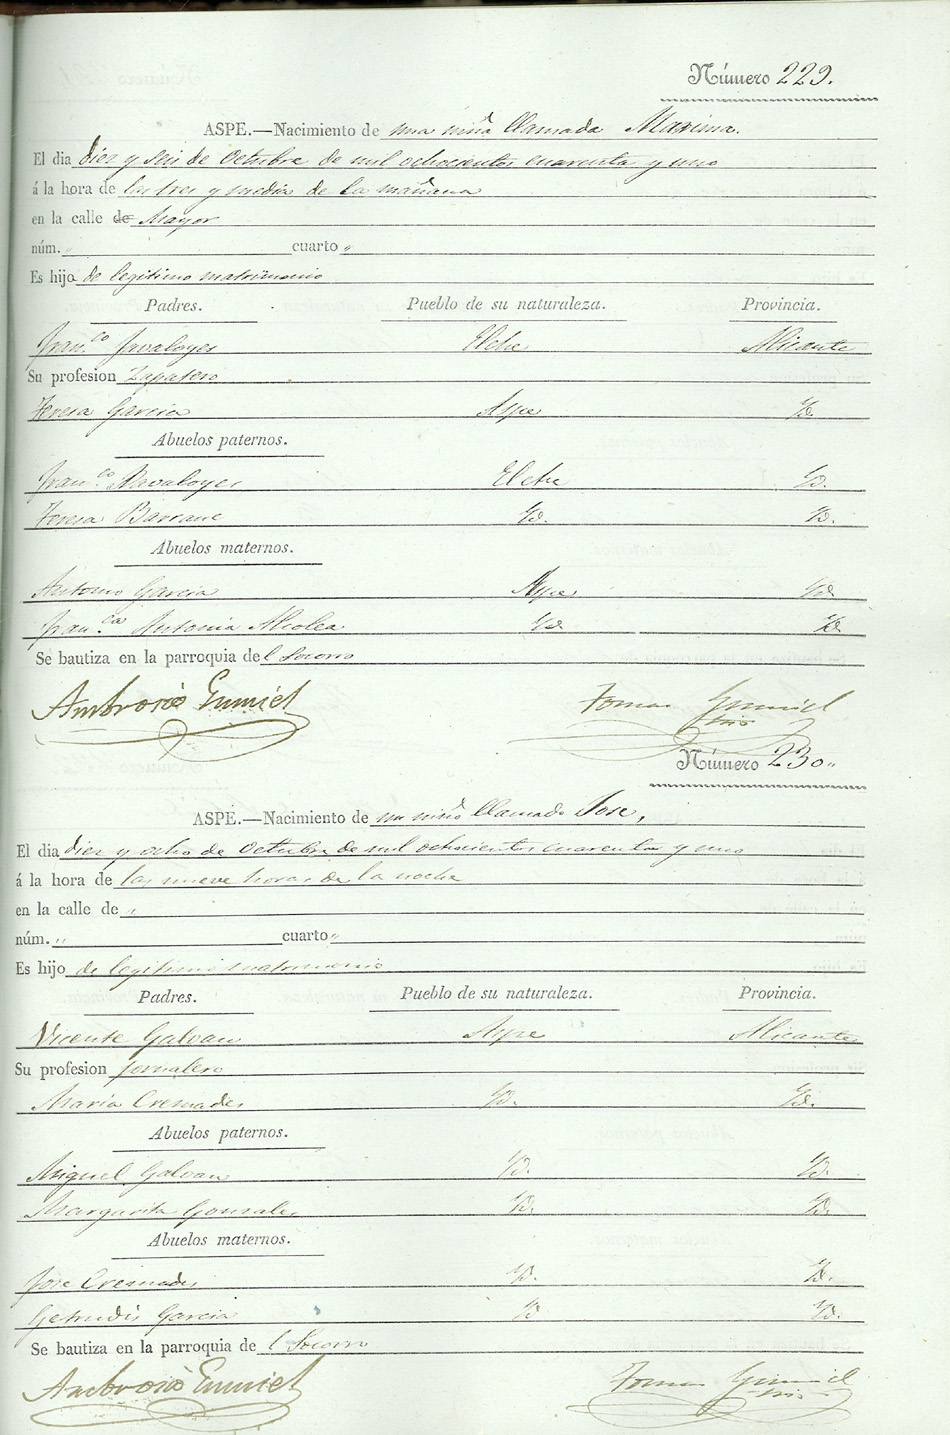 Número 229.
ASPE.—Nacimiento de una niña llamada Maxima.
El dia diez y seis de Octubre de mil ochocientos cuarenta y uno
á la hora de las tres y media de la mañana
en la calle de Mayor
núm. " cuarto "
Es hijo de legitimo matrimonio
Padres. Pueblo de su naturaleza. Provincia.
Fran.co Elche Alicante
Su profesion Zapatero
Teresa Garcia Aspe Yd.
Abuelos paternos.
Fran.co Elche Yd.
Teresa Yd. Yd.
Abuelos maternos.
Antonio Garcia Aspe Yd.
Fran.ca Antonia Alcolea Yd. Yd.
Se bautiza en la parroquia del Socorro
Ambrosio Tomas
Número 230.
ASPE.—Nacimiento de un niño llamado Jose,
El dia diez y ocho de Octubre de mil ochocientos cuarenta y uno
á la hora de las nueve horas de la noche
en la calle de "
núm. " cuarto "
Es hijo de legitimo matrimonio
Padres. Pueblo de su naturaleza. Provincia.
Vicente Galvan Aspe Alicante
Su profesion jornalero
Maria Cremades Yd. Yd.
Abuelos paternos.
Miguel Galvan Yd. Yd.
Margarita Gonzales Yd. Yd.
Abuelos maternos.
Jose Cremades Yd. Yd.
Getrudis Garcia Yd Yd.
Se bautiza en la parroquia del Socorro
Ambrosio Tomas